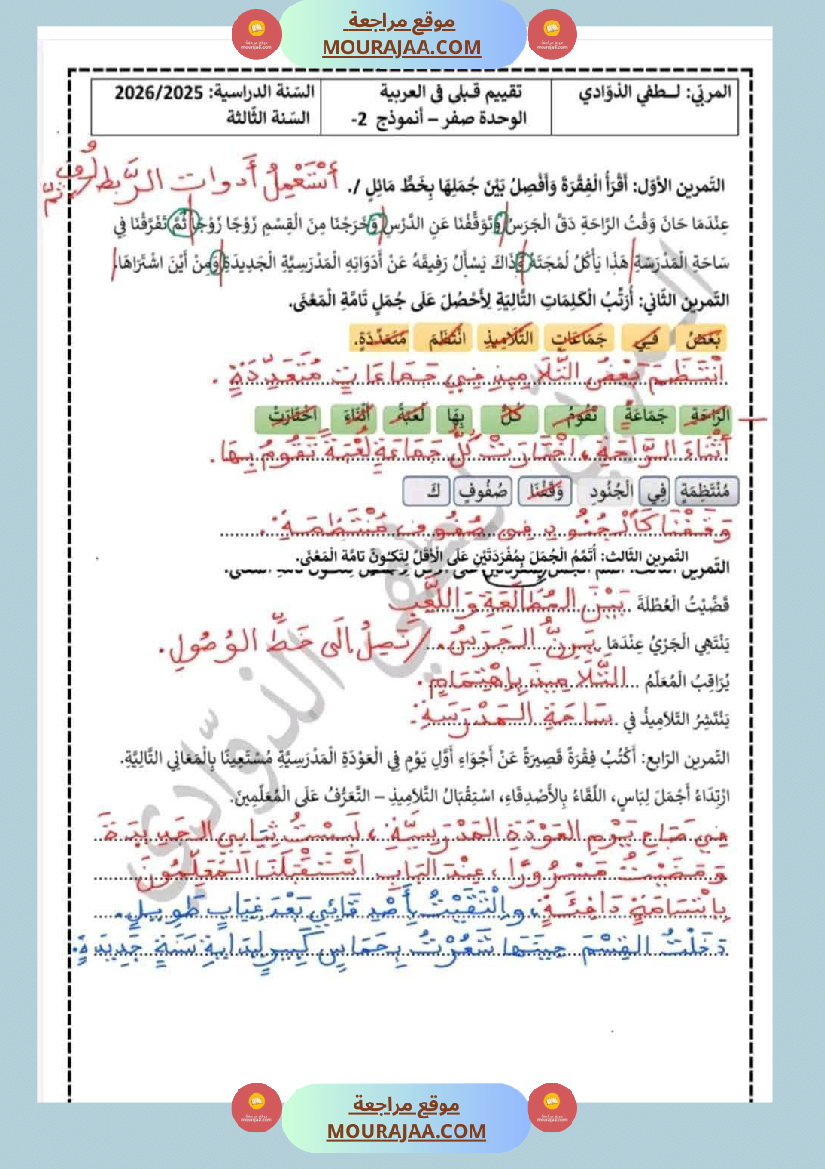 موقع مراجعة
MOURAJAA.COM
المربّي: لـطفي الذوّادي
تقييم قبلي في العربية
السّنة الدراسية: 2026/2025
الوحدة صفر – أنموذج 2-
السّنة الثّالثة
التّمرين الأوّل: أَقْرَأُ الْفِقْرَةَ وَأَفْصِلُ بَيْنَ جُمَلِهَا بِخَطٍّ مَائِلٍ /. أَسْتَعْمِلُ أَدوات الرَّبط
عِنْدَمَا حَانَ وَقْتُ الرَّاحَةِ دَقَّ الْجَرَسُ وَتَوَقَّفْنَا عَنِ الدَّرْسِ وَخَرَجْنَا مِنَ الْقِسْمِ زَوْجًا زَوْجًا ثُمَّ تَفَرَّقْنَا فِي
سَاحَةِ الْمَدْرَسَةِ هَذَا يَأْكُلُ لُمْجَتَهُ وَذَاكَ يَسْأَلُ رَفِيقَهُ عَنْ أَدَوَاتِهِ الْمَدْرَسِيَّةِ الْجَدِيدَةِ وَمِنْ أَيْنَ اشْتَرَاهَا.
التّمرين الثّاني: أُرَتِّبُ الْكَلِمَاتِ التَّالِيَةِ لِأَحْصُلَ عَلَى جُمَلٍ تَامَّةِ الْمَعْنَى.
بَعْضُ فِي جَمَاعَاتٍ التَّلَامِيذِ انْتَظَمَ مُتَعَدِّدَةٍ.
اِنْتَظَمَ بَعْضُ التَّلَامِيذِ فِي جَمَاعَاتٍ مُتَعَدِّدَةٍ.
الرَّاحَةِ جَمَاعَةٍ تَقُومُ كُلُّ بِهَا لُعْبَةً أَثْنَاءَ اخْتَارَتْ
أَثْنَاءَ الرَّاحَةِ، اِخْتَارَتْ كُلُّ جَمَاعَةٍ لُعْبَةً تَقُومُ بِهَا.
مُنْتَظِمَةٍ فِي الْجُنُودِ وَقَفْنَا صُفُوفٍ كَ
وَقَفْنَا كَالْجُنُودِ فِي صُفُوفٍ مُنْتَظِمَةٍ.
التّمرين الثّالث: أُتَمِّمُ الْجُمَلَ بِمُفْرَدَتَيْنِ عَلَى الْأَقَلِّ لِتَكُونَ تَامَّةَ الْمَعْنَى.
قَضَيْتُ الْعُطْلَةَ بَيْنَ المُطَالَعَةِ وَاللَّعِبِ
يَنْتَهِي الْجَرْيُ عِنْدَمَا يَرِنُّ الجَرَسُ. / نَصِلُ إلَى خَطِّ الوُصُولِ.
يُرَاقِبُ الْمُعَلِّمُ التَّلَامِيذَ بِاهْتِمَامٍ.
يَنْتَشِرُ التّلَامِيذُ فِي سَاحَةِ المَدْرَسَةِ.
التّمرين الرّابع: أَكْتُبُ فِقْرَةً قَصِيرَةً عَنْ أَجْوَاءِ أَوَّلِ يَوْمٍ فِي الْعَوْدَةِ الْمَدْرَسِيَّةِ مُسْتَعِينًا بِالْمَعَانِي التَّالِيَةِ.
ارْتِدَاءُ أَجْمَلَ لِبَاسٍ، اللِّقَاءُ بِالأَصْدِقَاءِ، اسْتِقْبَالُ التَّلَامِيذِ – التَّعَرُّفُ عَلَى الْمُعَلِّمِينَ.
فِي صَبَاحِ يَوْمِ العَوْدَةِ المَدْرَسِيَّةِ، لَبِسْتُ ثِيَابِي الجَدِيدَةَ
وَمَضَيْتُ مَسْرُورًا، عِنْدَ البَابِ اسْتَقْبَلَنَا المُعَلِّمُونَ
بِابْتِسَامَةٍ دَافِئَةٍ، وَالْتَقَيْتُ بِأَصْدِقَائِي بَعْدَ غِيَابٍ طَوِيلٍ.
دَخَلْتُ القِسْمَ حِينَهَا شَعُرْتُ بِحَمَاسٍ كَبِيرٍ لِبِدَايَةِ سَنَةٍ جَدِيدَةٍ.
موقع مراجعة
MOURAJAA.COM